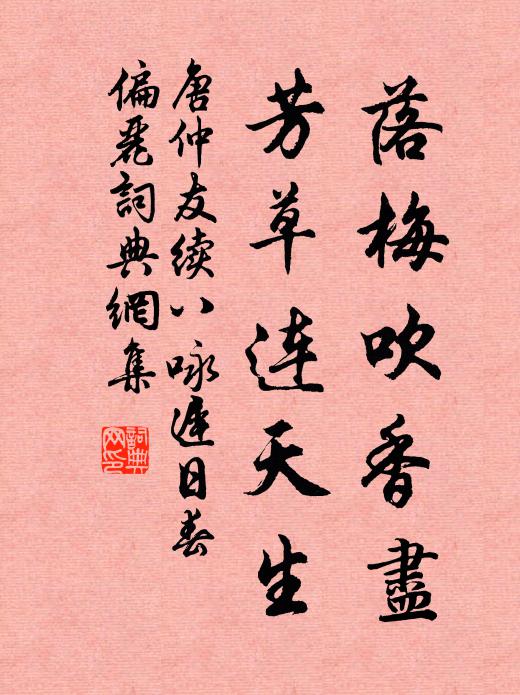 落梅吹香盡
芳草連天生
唐仲友續八咏遲日春
偏麗詞典網集
詞典
网印